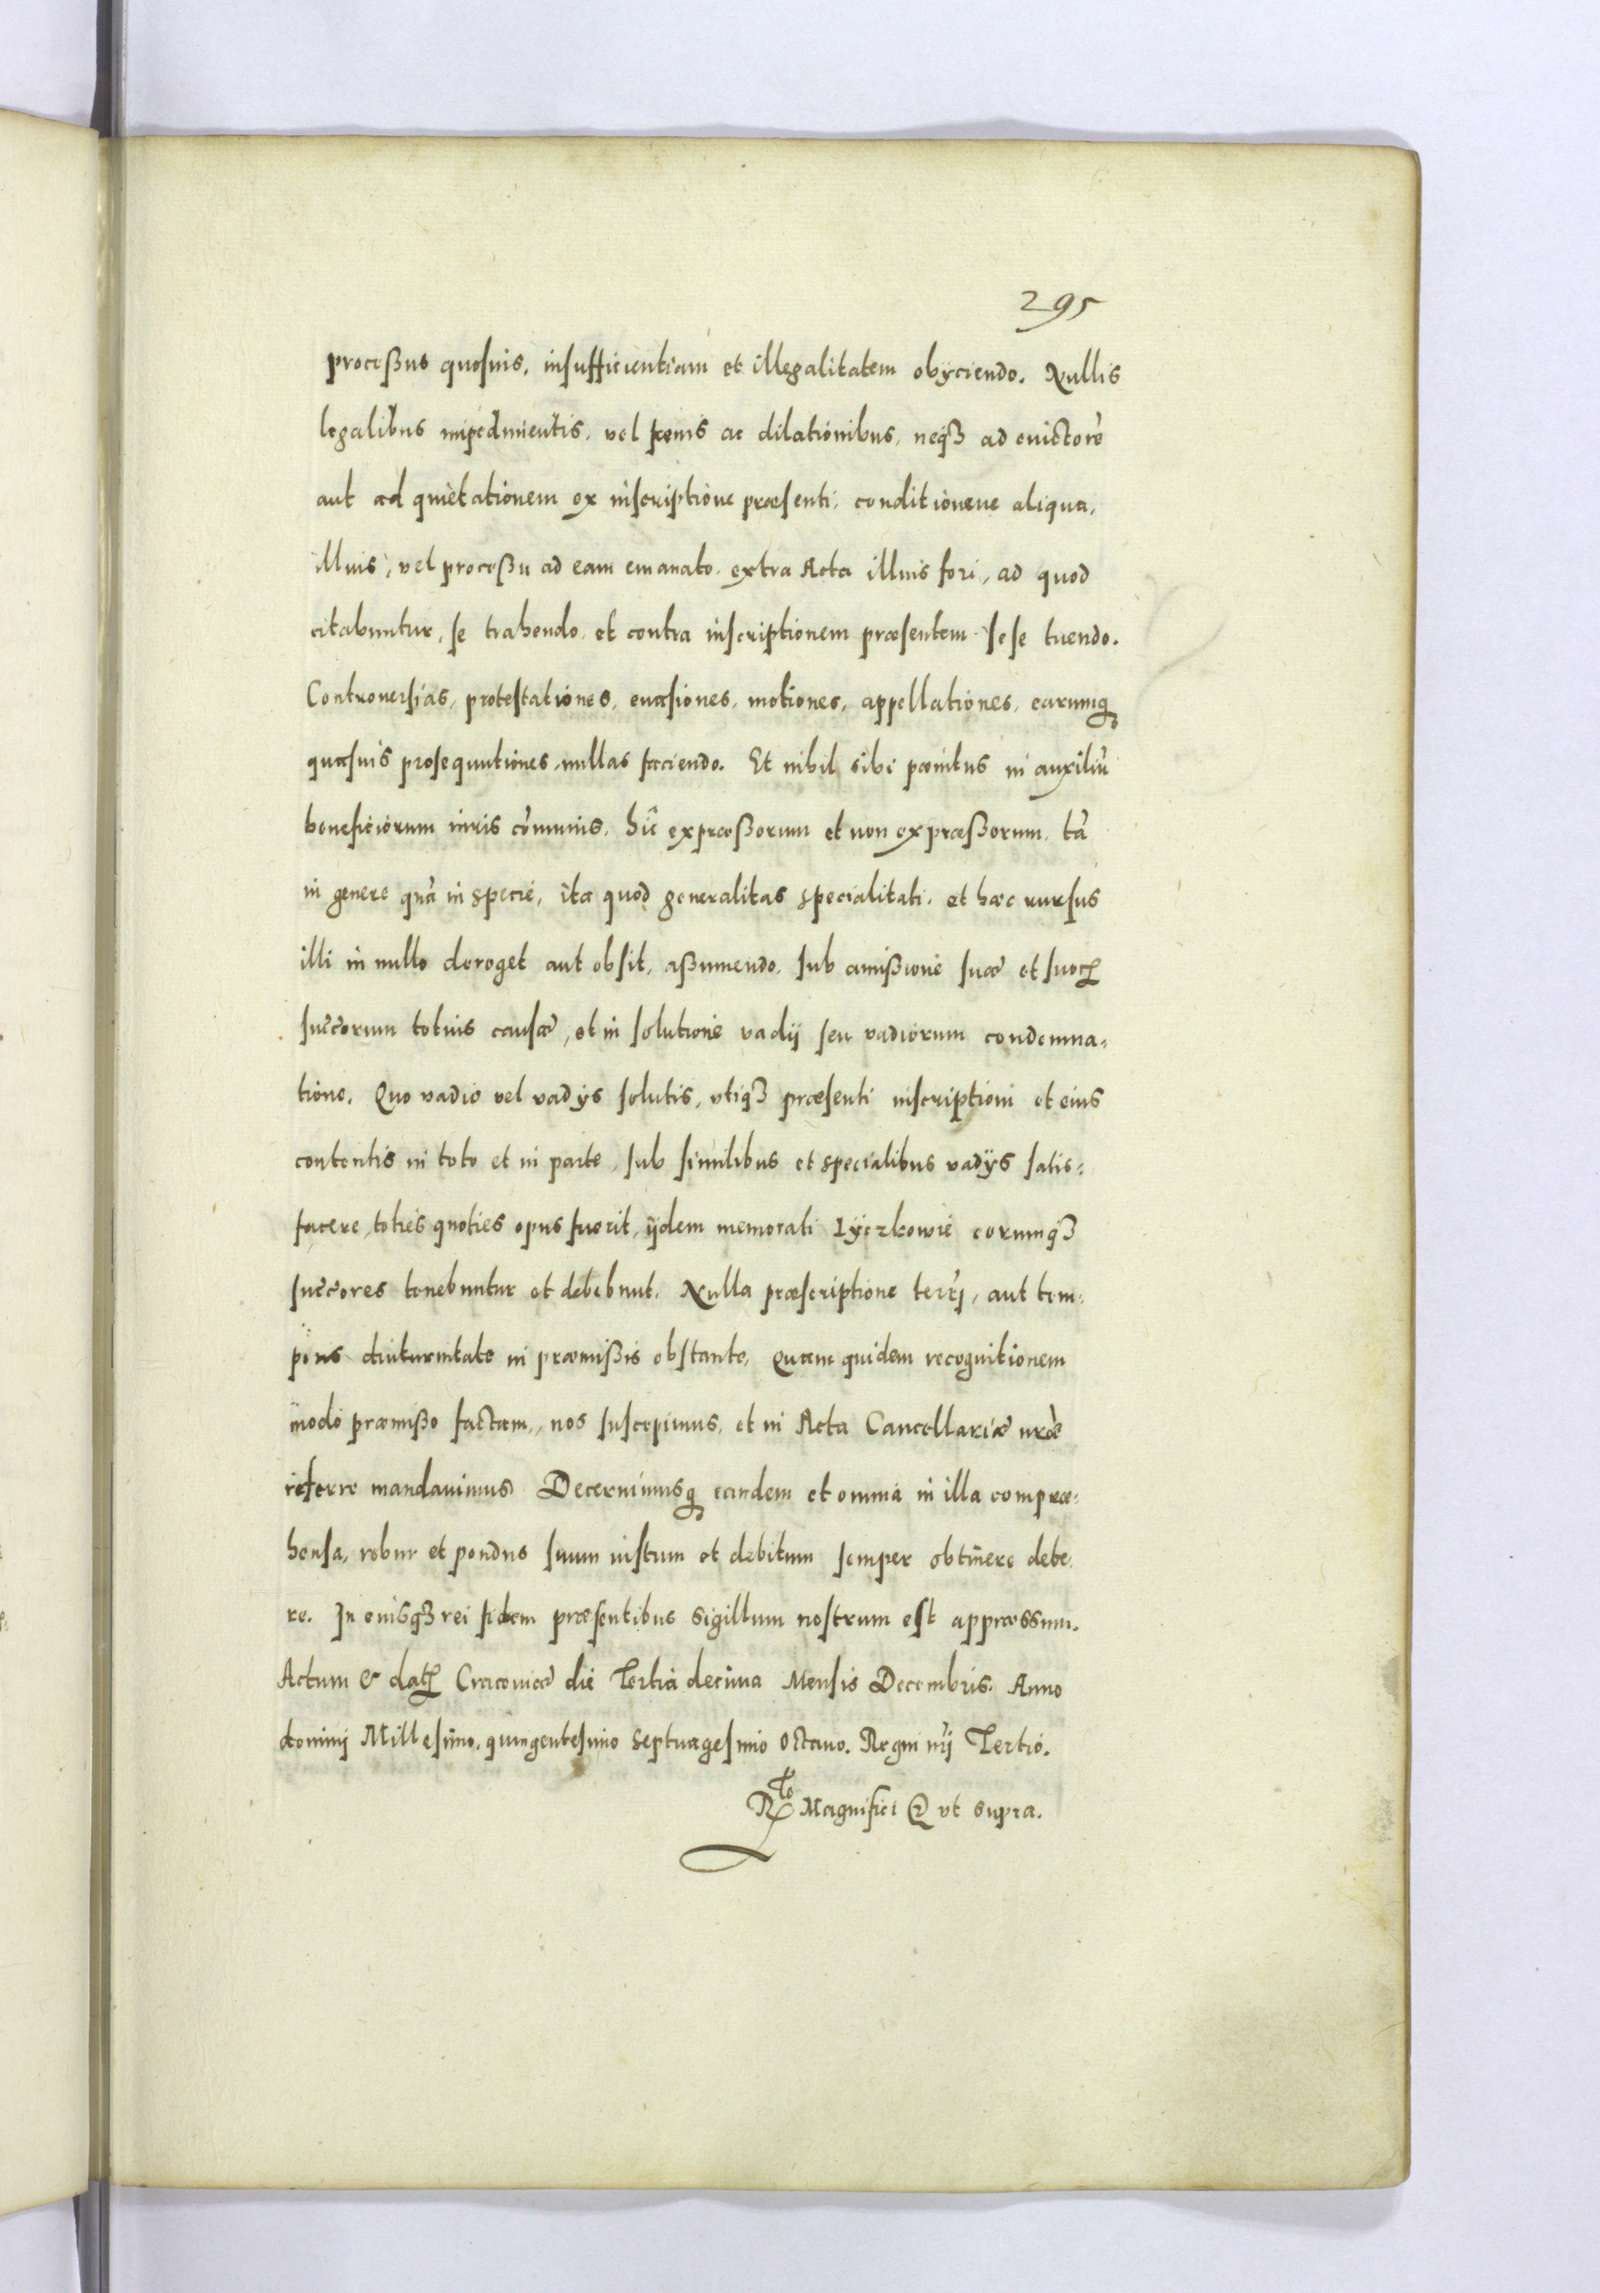 295
proceßus quosuis, insufficientiam et illegalitatem obÿciendo. Nullis
legalibus impedimentis, vel ac dilationibus, neqȝ ad euictorē
aut ad quietationem ex inscriptione præsenti, conditioneue aliqua,
illius, vel proceßu ad eam emanato, extra Acta illius fori, ad quod
citabuntur, se trahendo, et contra inscriptionem præsentem sese tuendo.
Controuersias, protestationes, euasiones, motiones, appellationes, earumqꝫ
quasuis prosequutiones, nullas faciendo. Et nihil sibi pænitus in auxiliū
beneficiorum iuris cōmunis, hīc expræßorum et non expræßorum, tā
in genere quā in specie, ita quod generalitas specialitati, et hæc rursus
illi in nullo deroget aut obsit, aßumendo, sub amißione suæ et suoꝝ
succ̄orum totius causæ, et in solutione vadij seu vadiorum condemna=
tione. Quo vadio vel vadÿs solutis, vtiqȝ præsenti inscriptioni et eius
contentis in toto et in parte, sub similibus et specialibus vadÿs satis=
facere, toties quoties opus fuerit, ÿdem memorati Lÿczkowie eorumqȝ
succ̄ores tenebuntur et debebunt. Nulla præscriptione terrῑ, aut tem=
poris diuturnitate in præmißis obstante, Quam quidem recognitionem
modo præmißo factam, nos suscepimus, et in Acta Cancellariæ nr̄æ
referre mandauimus Decernimusqꝫ eandem et omnia in illa compræ=
hensa, robur et pondus suum iustum et debitum semper obtinere debe=
re. In cuiusqȝ rei fidem præsentibus sigillum nostrum est appræssum.
Actum & datꝝ Cracouiæ die Tertia decima Mensis Decembris. Anno
domini Millesimo, quingentesimo septuagesimo octauo. Regni nr̄i Tertio.
Rῑo Magnifici & vt supra.